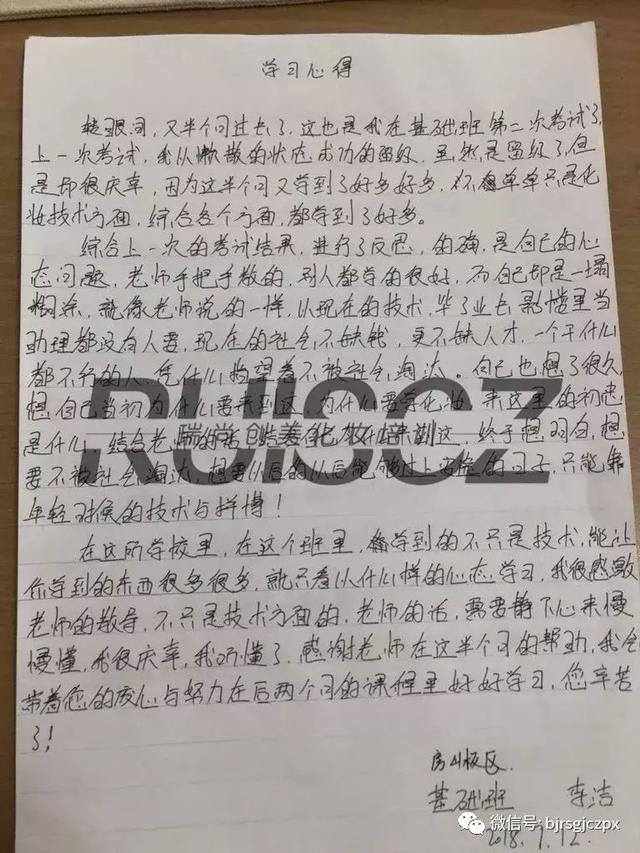 学习心得
转眼间，又半个月过去了，这也是我在基础班第二次考试了，
上一次考试，我从懒散的状态成功的留级，虽然是留级了，但
是却很庆幸，因为这半个月又学到了好多好多，不单单只是化
妆技术方面，综合各个方面，都学到了好多。
综合上一次的考试结果，进行了反思，的确，是自己的心
态问题，老师手把手教的，别人都学的很好，而自己却是一塌
糊涂，就像老师说的一样，从现在的技术，毕了业去影楼里当
助理都没有人要，现在的社会不缺钱，更不缺人才，一个干什么
都不行的人，凭什么指望着不被社会淘汰。自己也想了很久，
想自己当初为什么要来到这，为什么要学化妆，来这里的初衷
是什么，结合老师的话，这，终于想明白，想
要不被社会淘汰，想要从后的以后能够过上安稳的日子，只能靠
年轻时候的技术与拼搏！
在这所学校里，在这个班里，学到的不只是技术，能让
你学到的东西很多很多，就只看以什么样的心态学习，我很感激
老师的教导，不只是技术方面的，老师的话，需要静下心来慢
慢懂，我很庆幸，我听懂了，感谢老师在这半个月的帮助，我会
带着您的爱心与努力在后两个月的课程里好好学习，您辛苦
了！
房山校区
基础班 李洁
2018.7.12
RUISCZ
瑞尚创美化妆培训
微信号: bjrsgjczpx